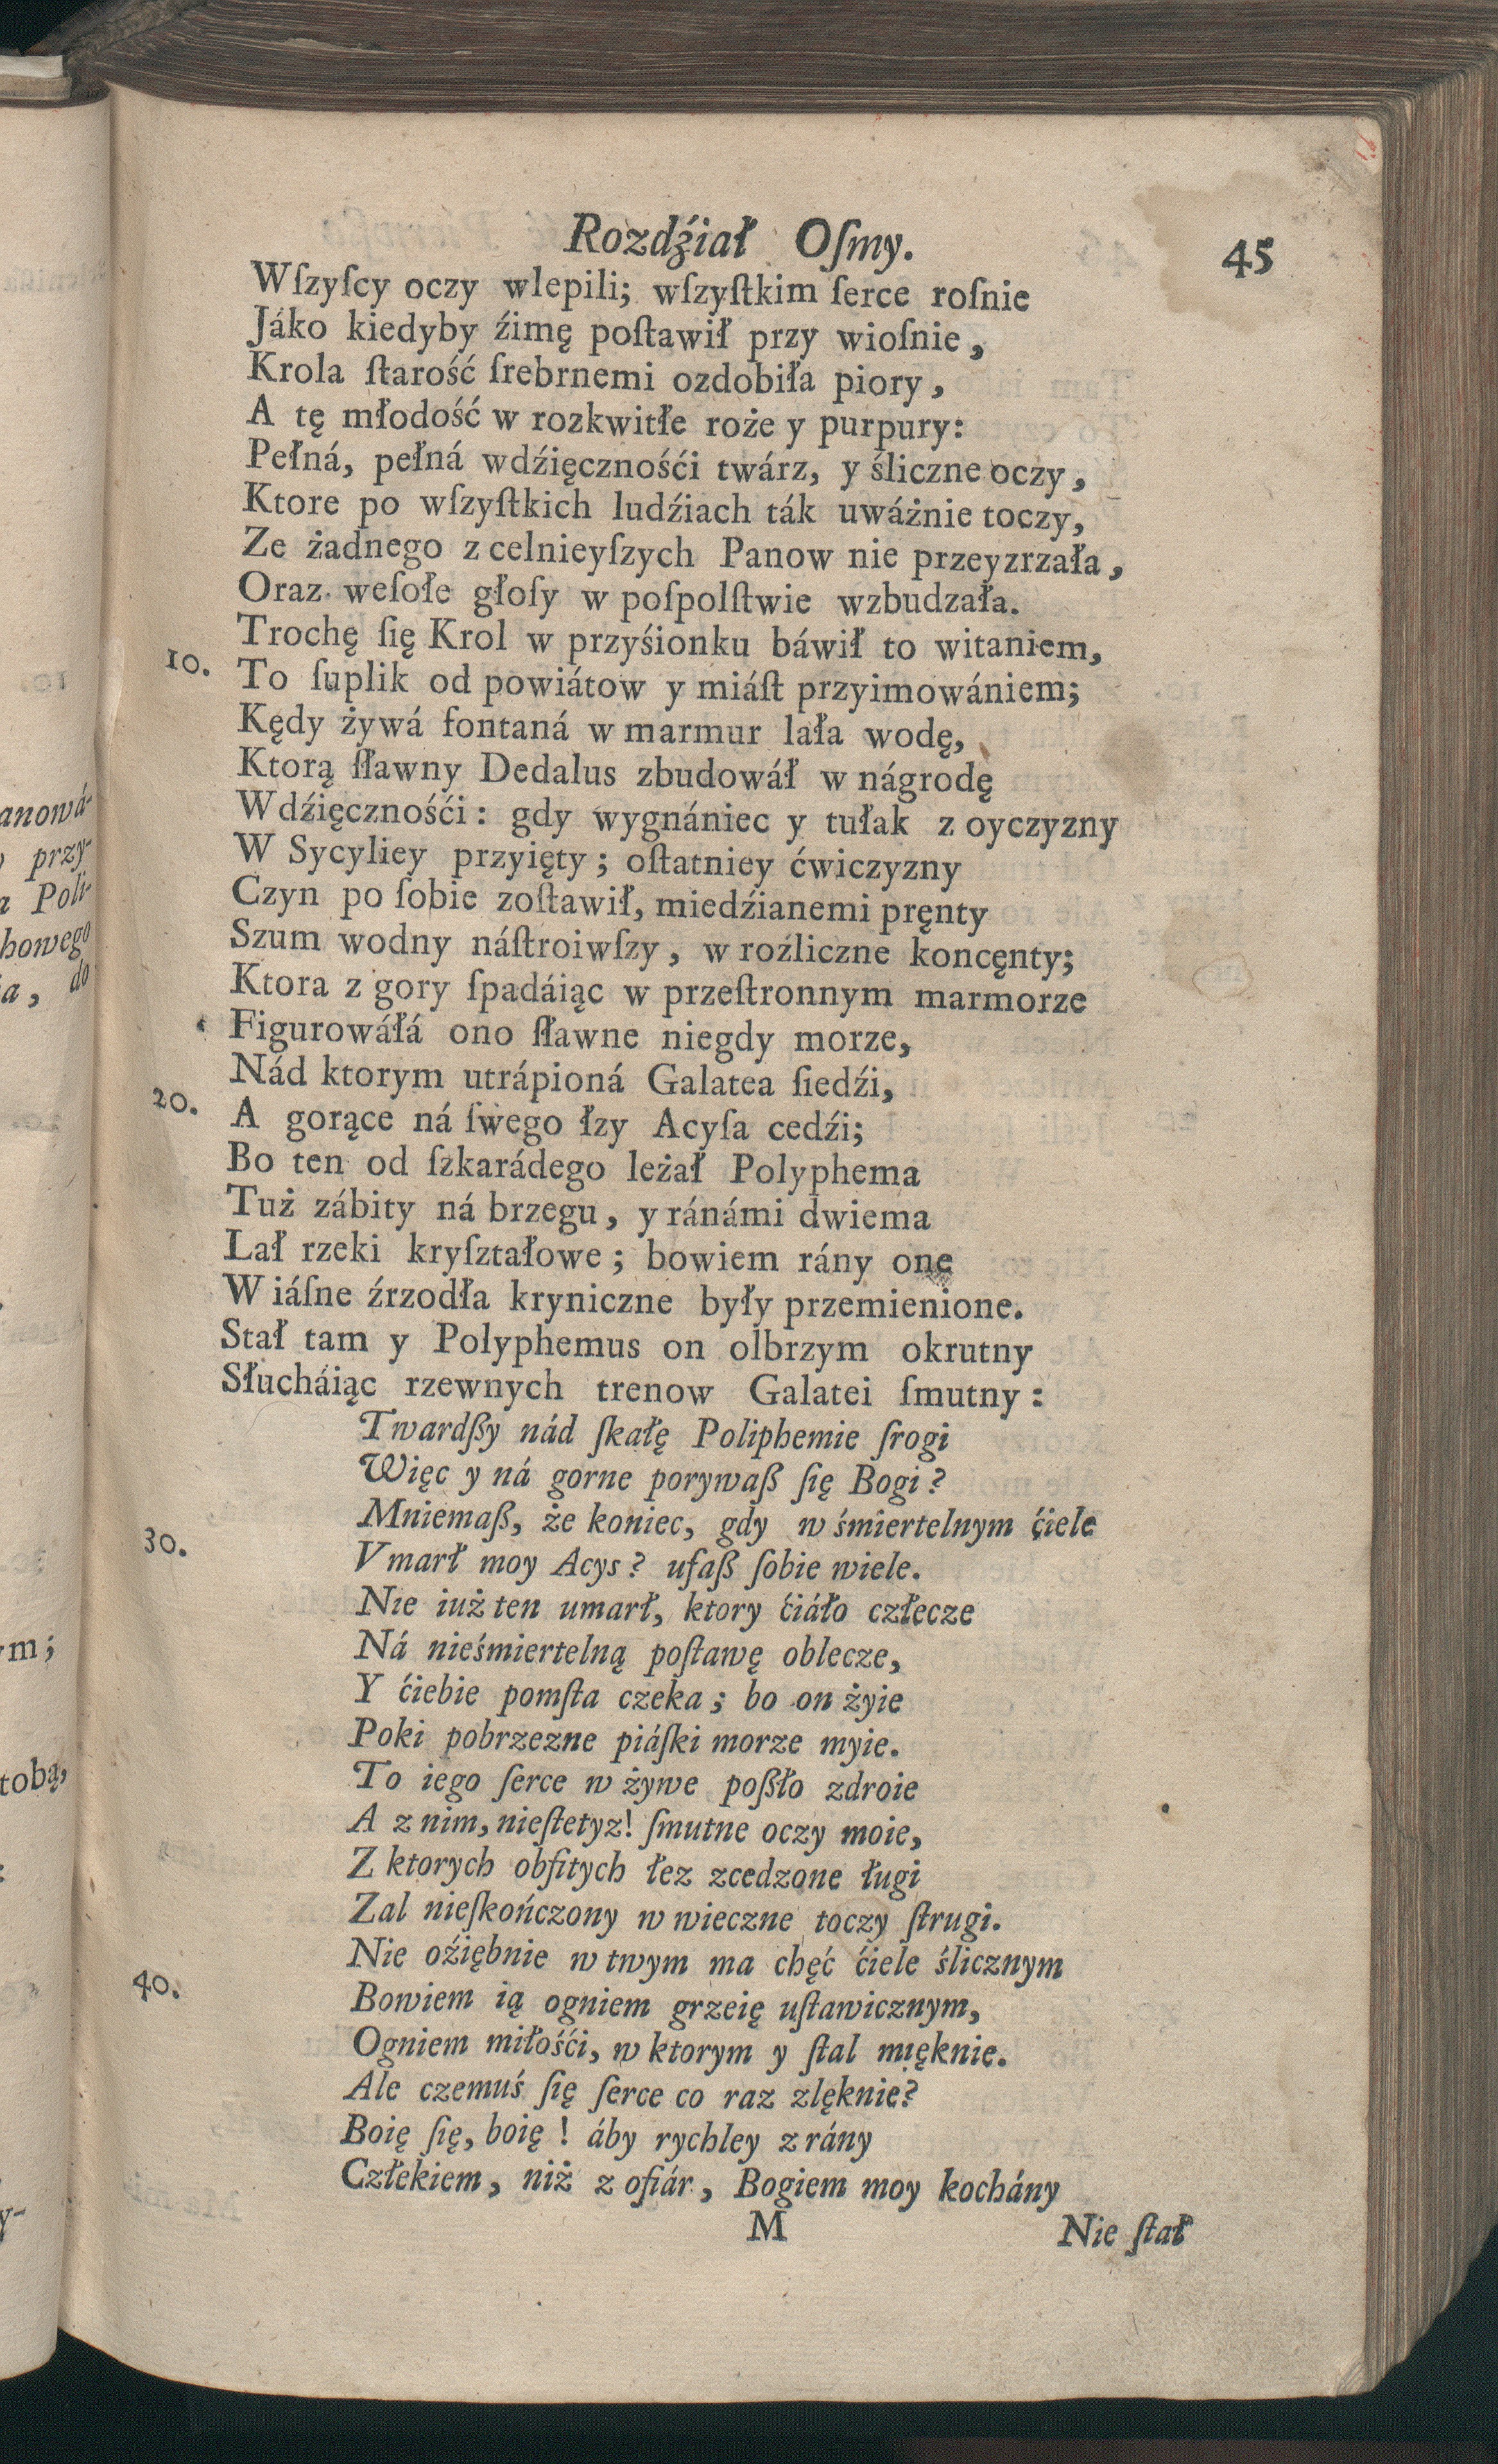 Rozdźiał Oſmy. 45
Wſzyſcy oczy wlepili; wſzyſtkim ſerce roſnie
Jáko kiedyby źimę poſtawił przy wioſnie,
Krola ſtarość ſrebrnemi ozdobiła piory,
A tę młodość w rozkwitłe roże y purpury:
Pełná, pełná wdźięcznośći twárz, y śliczne oczy,
Ktore po wſzyſtkich ludźiach ták uwáżnie toczy,
Ze żadnego z celnieyſzych Panow nie przeyzrzała,
Oraz weſołe głoſy w poſpolſtwie wzbudzała.
Trochę ſię Krol w przyśionku báwił to witaniem,
10. To ſuplik od powiátow y miáſt przyimowániem;
Kędy żywá fontaná w marmur lała wodę,
Ktorą ſławny Dedalus zbudowáł w nágrodę
Wdźięcznośći: gdy wygnániec y tułak z oyczyzny
W Sycyliey przyięty; oſtatniey ćwiczyzny
Czyn po ſobie zoſtawił, miedźianemi pręnty
Szum wodny náſtroiwſzy, w roźliczne koncęnty;
Ktora z gory ſpadáiąc w przeſtronnym marmorze
Figurowáłá ono ſławne niegdy morze,
Nád ktorym utrápioná Galatea ſiedźi,
20. A gorące ná ſwego łzy Acyſa cedźi;
Bo ten od ſzkarádego leżał Polyphema
Tuż zábity ná brzegu, y ránámi dwiema
Lał rzeki kryſztałowe; bowiem rány one
W iáſne źrzodła kryniczne były przemienione.
Stał tam y Polyphemus on olbrzym okrutny
Słucháiąc rzewnych trenow Galatei ſmutny:
Twardßy nád ſkałę Poliphemie ſrogi
Więc y ná gorne porywaß ſię Bogi?
Mniemaß, że koniec, gdy w śmiertelnym ćiele
30. Vmarł moy Acys? ufaß ſobie wiele.
Nie iuż ten umarł, ktory ćiáło człecze
Ná nieśmiertelną poſtawę oblecze,
Y ćiebie pomſta czeka; bo on żyie
Poki pobrzezne piáſki morze myie.
To iego ſerce w żywe poßło zdroie
A z nim, nieſtetyz! ſmutne oczy moie,
Z ktorych obfitych łez zcedzone ługi
Zal nieſkończony w wieczne toczy ſtrugi.
Nie oźiębnie w twym ma chęć ćiele ślicznym
40. Bowiem ią ogniem grzeię uſtawicznym,
Ogniem miłośći, w ktorym y ſtal mięknie.
Ale czemuś ſię ſerce co raz zlęknie?
Boię ſię, boię! áby rychley z rány
Człekiem, niż z ofiár, Bogiem moy kochány
M Nie ſtał
anowá-
przy-
Poli-
howego
a, do
ym;
tobą,